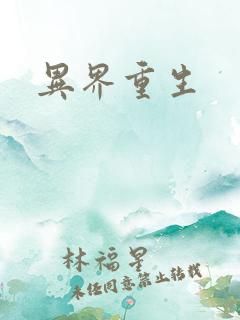 異界重生
林福星
未经同意禁止转载